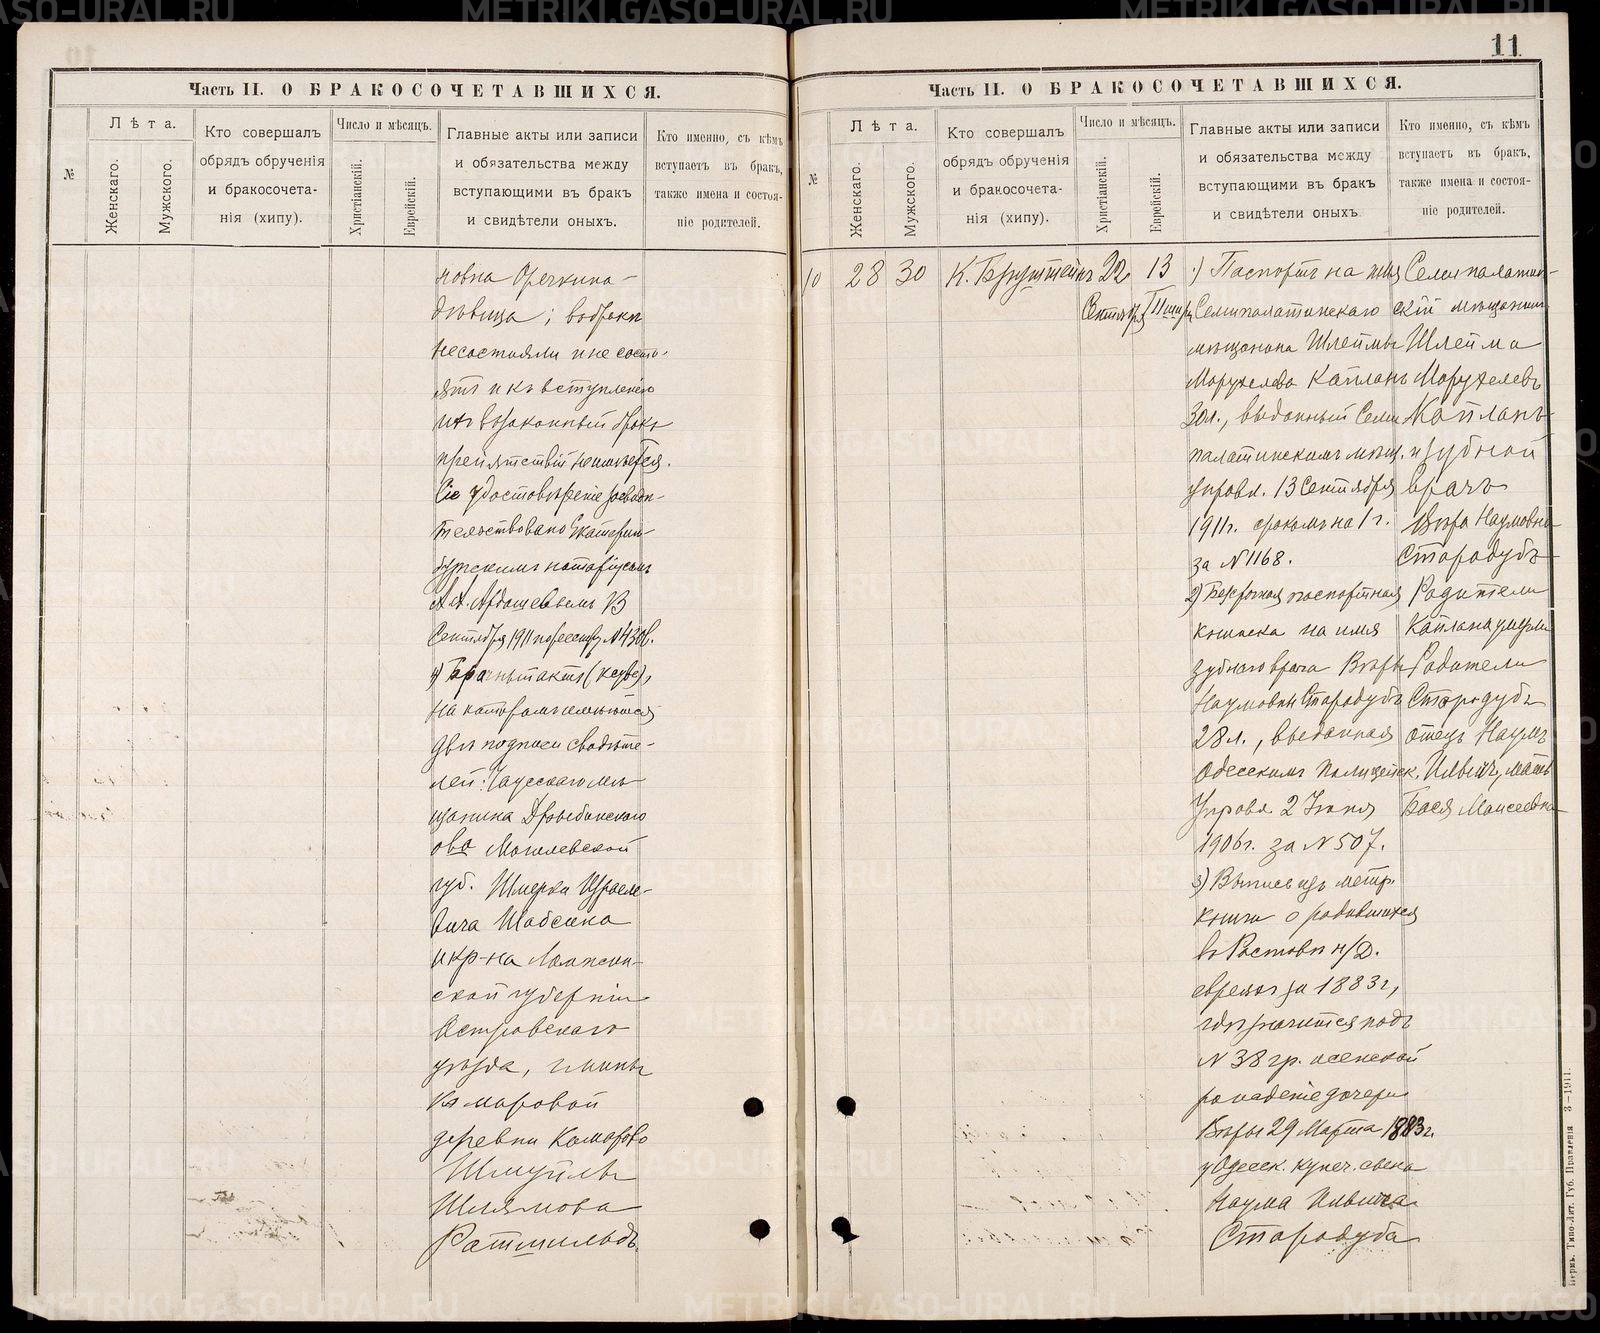 11
Часть II. О БРАКОСОЧЕТАВШИХСЯ.
№
Лѣта.
Женскаго.
Мужского.
Кто совершалъ
обрядъ обрученія
и бракосочета-
нія (хипу).
Число и мѣсяцъ.
Христіанскій.
Еврейскій.
Главные акты или записи
и обязательства между
вступающими въ бракъ
и свидѣтели оныхъ.
Кто именно, съ кѣмъ
вступаетъ въ бракъ,
также имена и состоя-
ніе родителей.
новна
дѣвица; въ бракѣ
несостояли и не состо-
ятъ и къ вступленію
ихъ въ законный бракъ
препятствій неимѣется.
Сіе удостовѣреніе засвидѣ-
тельствовано Екатерин-
бургскимъ нотаріусомъ
Сентября 1911 по реестру №
4) Брачный актъ
на которомъ имѣются
двѣ подписи свидѣте-
лей: Чаусскаго мѣ-
щанина Дрыбинскаго
ова Могилевской
губ. Шмерки Израеле-
вича Шабсина
и кр-на Ломжин-
ской губерніи
Островскаго
уѣзда, гмины
Комаровой
деревни Комарово
Шмуйль
Шлямова
Часть II. О БРАКОСОЧЕТАВШИХСЯ.
№
Лѣта.
Женскаго.
Мужского.
Кто совершалъ
обрядъ обрученія
и бракосочета-
нія (хипу).
Число и мѣсяцъ.
Христіанскій.
Еврейскій.
Главные акты или записи
и обязательства между
вступающими въ бракъ
и свидѣтели оныхъ
Кто именно, съ кѣмъ
вступаетъ въ бракъ,
также имена и состоя-
ніе родителей.
10
28
30
К. Бруштейнъ
22
Сентября
13
Тишри
1) Паспортъ на имя
Семипалатинскаго
мѣщанина Шлеймы
Марухелева Капланъ
30 л., выданный Семи
палатинскимъ мѣщ.
управл. 13 Сентября
1911 г. срокомъ на 1 г.
за № 1168.
2) Безсрочная паспортная
книжка на имя
зубного врача Вѣры
Наумовны Стародубъ
28 л., выданная
Одесскимъ Полицейск.
Управл. 2 Іюня
1906 г. за № 507.
3) Выпись изъ метр.
книги о родившихся
въ Ростовѣ н/Д.
евреяхъ за 1883 г.,
гдѣ значится подъ
№ 38 гр. женской
рожденіе дочери
Вѣры 29 Марта 1883 г.
у Одесск. купеч. сына
Наума Ильича
Стародуба
Семипалатин-
скій мѣщанинъ
Шлейма
Марухелевъ
Капланъ
и зубной
врачъ
Вѣра Наумовна
Стародубъ
Родители
Каплана умерли
Родители
Стародубъ
отецъ Наумъ
Ильичъ, мать
Бася Моисеевна
Пермь. Типо-Лит. Губ. Правленія 3—1911.
METRIKI.GASO-URAL.RU